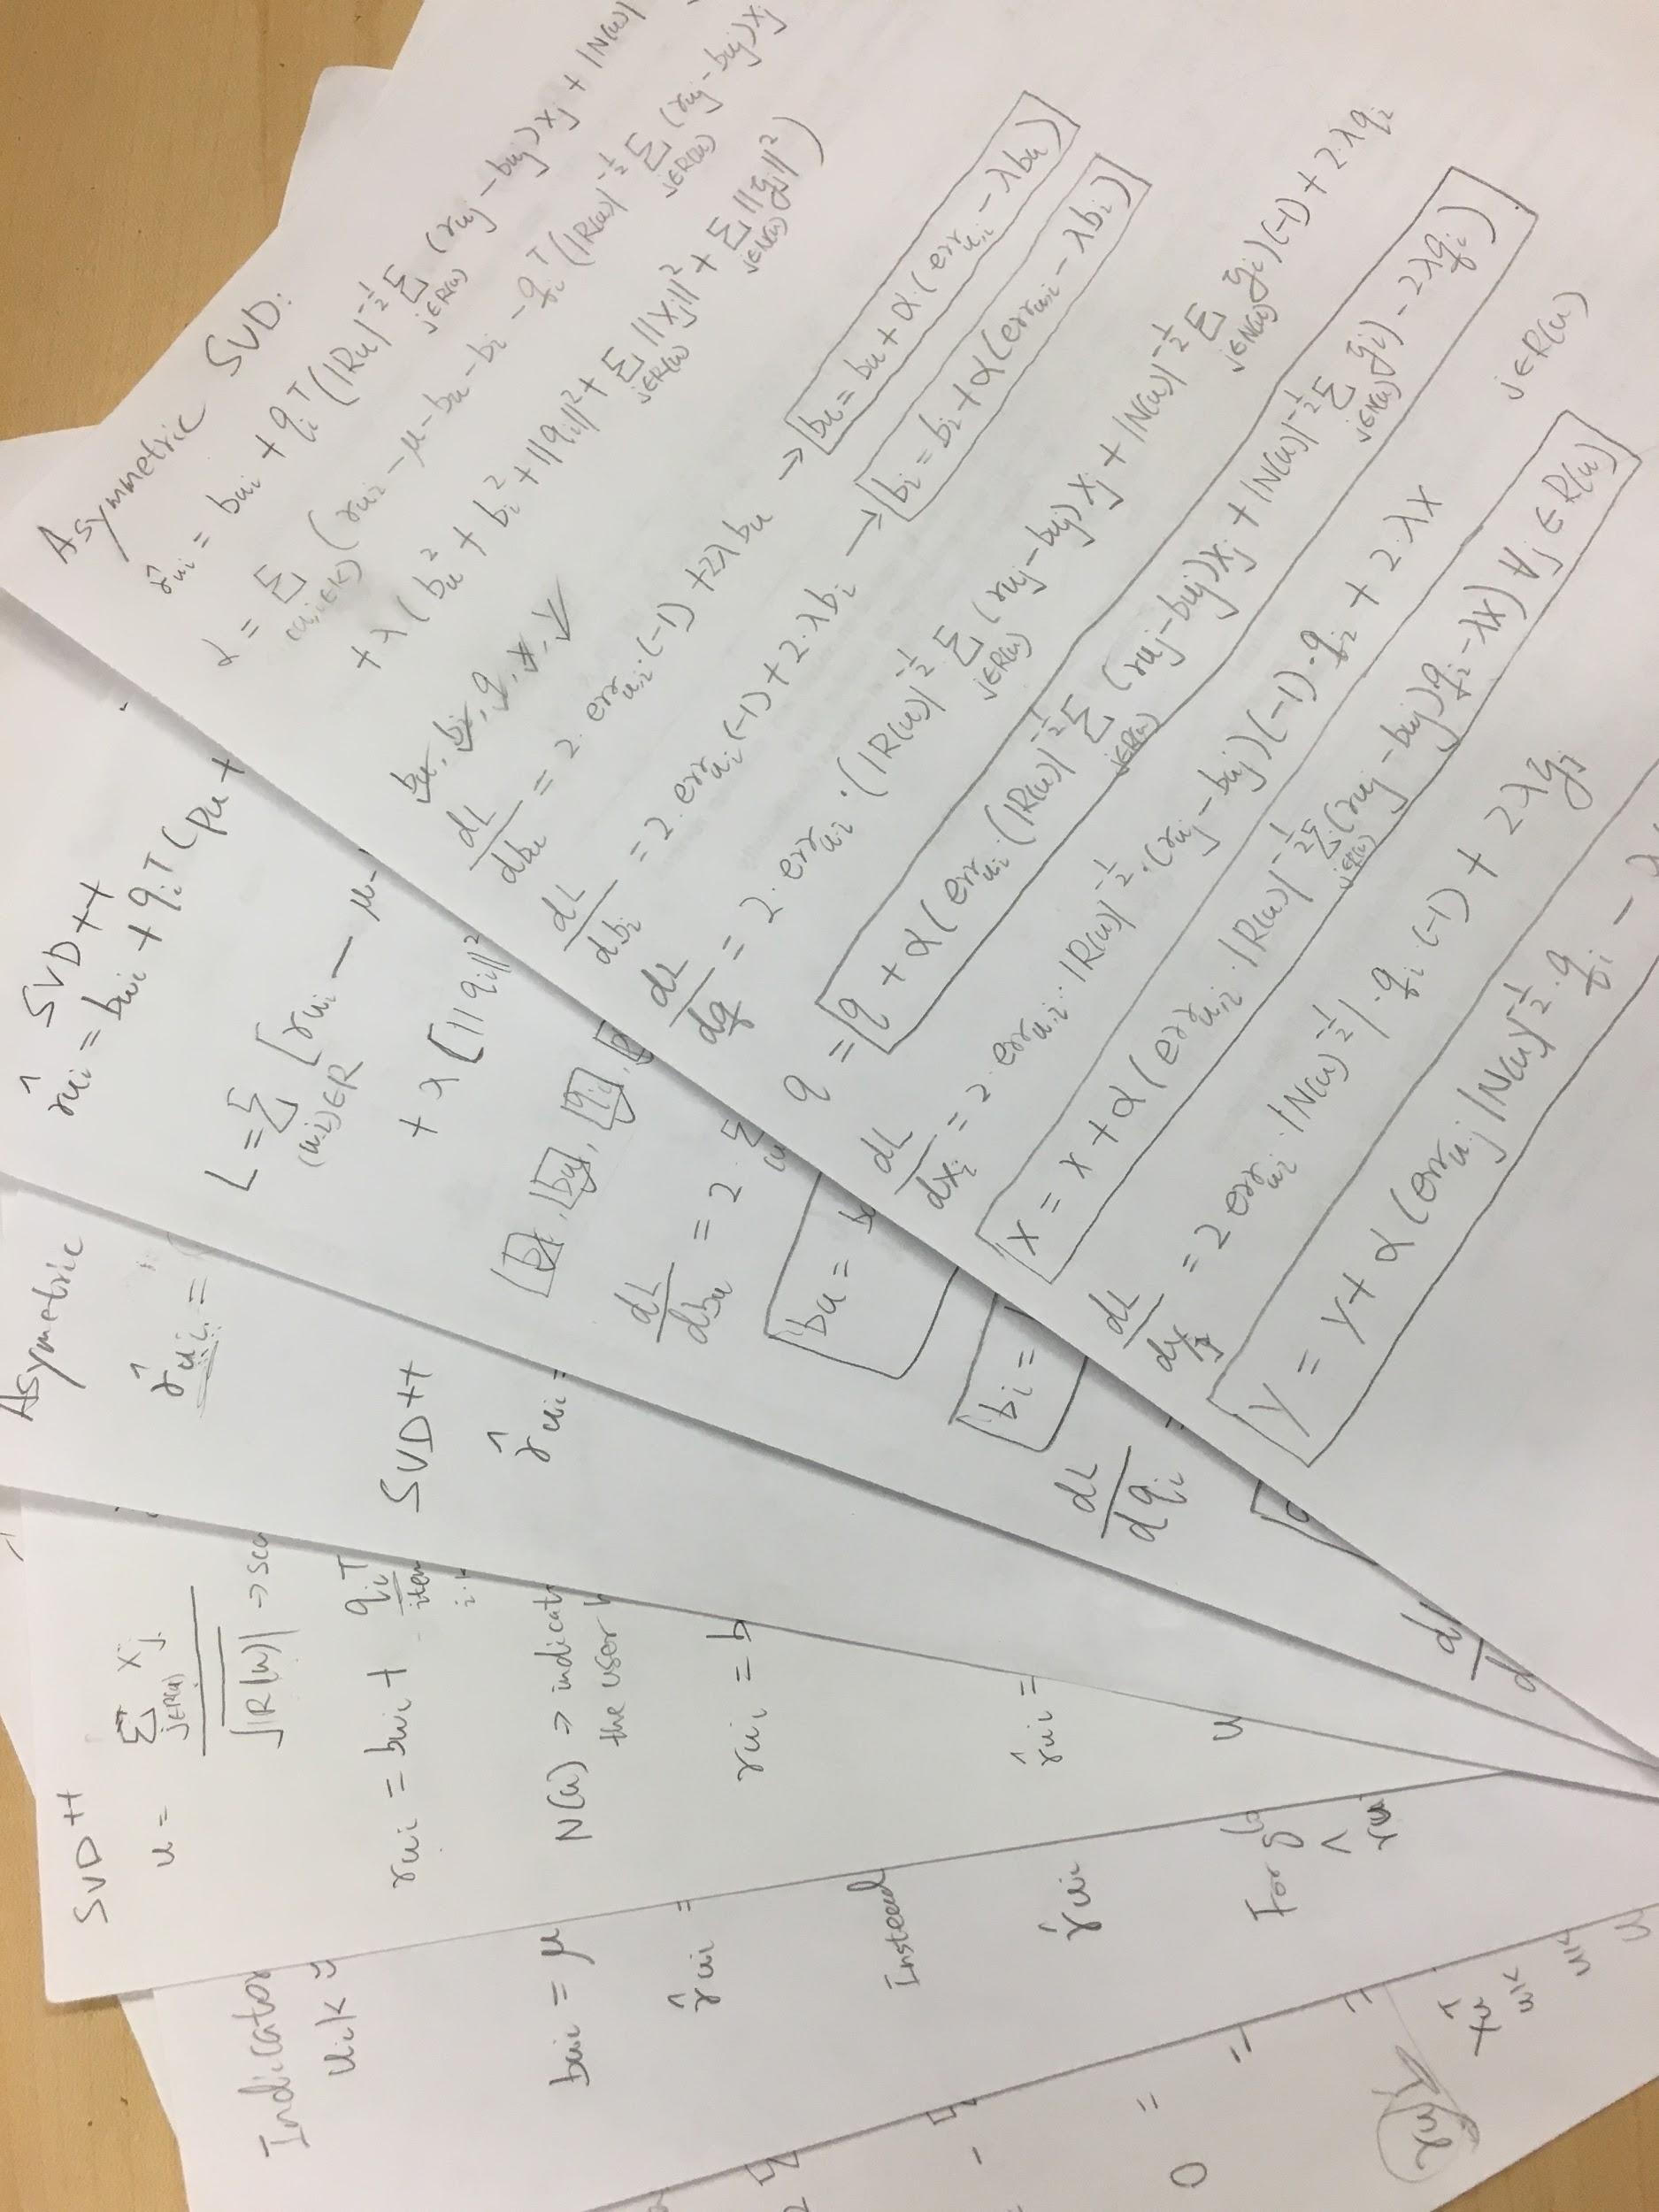 Asymmetric SVD:
r̂ui = bui + qiᵀ(|Ru|^-½ Σ j∈R(u) (ruj - buj)xj + |N(u)|
L = Σ (u,i∈k) (rui - μ - bu - bi - qiᵀ(|R(u)|^-½ Σ j∈R(u) (ruj - buj)xj
+ λ(bu² + bi² + ||qi||² + Σ j∈R(u) ||xj||² + Σ j∈N(u) ||yj||²)
bu, bi, q, x, y
dL/dbu = 2·err ui (-1) + 2λbu → bu = bu + α·(err ui - λbu)
dL/dbi = 2·err ui (-1) + 2·λbi → bi = bi + α(err ui - λbi)
dL/dq = 2·err ui·(|R(u)|^-½ Σ j∈R(u) (ruj - buj)xj + |N(u)|^-½ Σ j∈N(u) yi)(-1) + 2·λqi
q = q + α(err ui·(|R(u)|^-½ Σ j∈R(u) (ruj - buj)xj + |N(u)|^-½ Σ j∈N(u) yi) - 2λqi)
dL/dxi = 2·err ui·|R(u)|^-½·(ruj - buj)(-1)·qi + 2·λx j∈R(u)
x = x + α(err ui·|R(u)|^-½ Σ j∈R(u) (ruj - buj)qi - λx) ∀j ∈ R(u)
dL/dyj = 2 err ui·|N(u)^-½|·qi·(-1) + 2λyj
y = y + α(err uj |N(u)|^-½·qi - λ
SVD++
r̂ui = bui + qiᵀ(pu +
L = Σ (u,i)∈R [rui - μ-
+ λ[||qi||²
bi, bu, qi,
dL/dbu = 2· Σ
bu = b
bi =
dL/dqi
dL/d
Asymetric
r̂ui =
SVD++
r̂ui =
SVD++
u = Σ j∈R(u) xj / √|R(u)| →
rui = bui + qiᵀ
N(u) →
the user
rui = b
r̂ui =
u
Indicator
bui = μ
r̂ui =
Instead
r̂ui
For
r̂ui
0 =